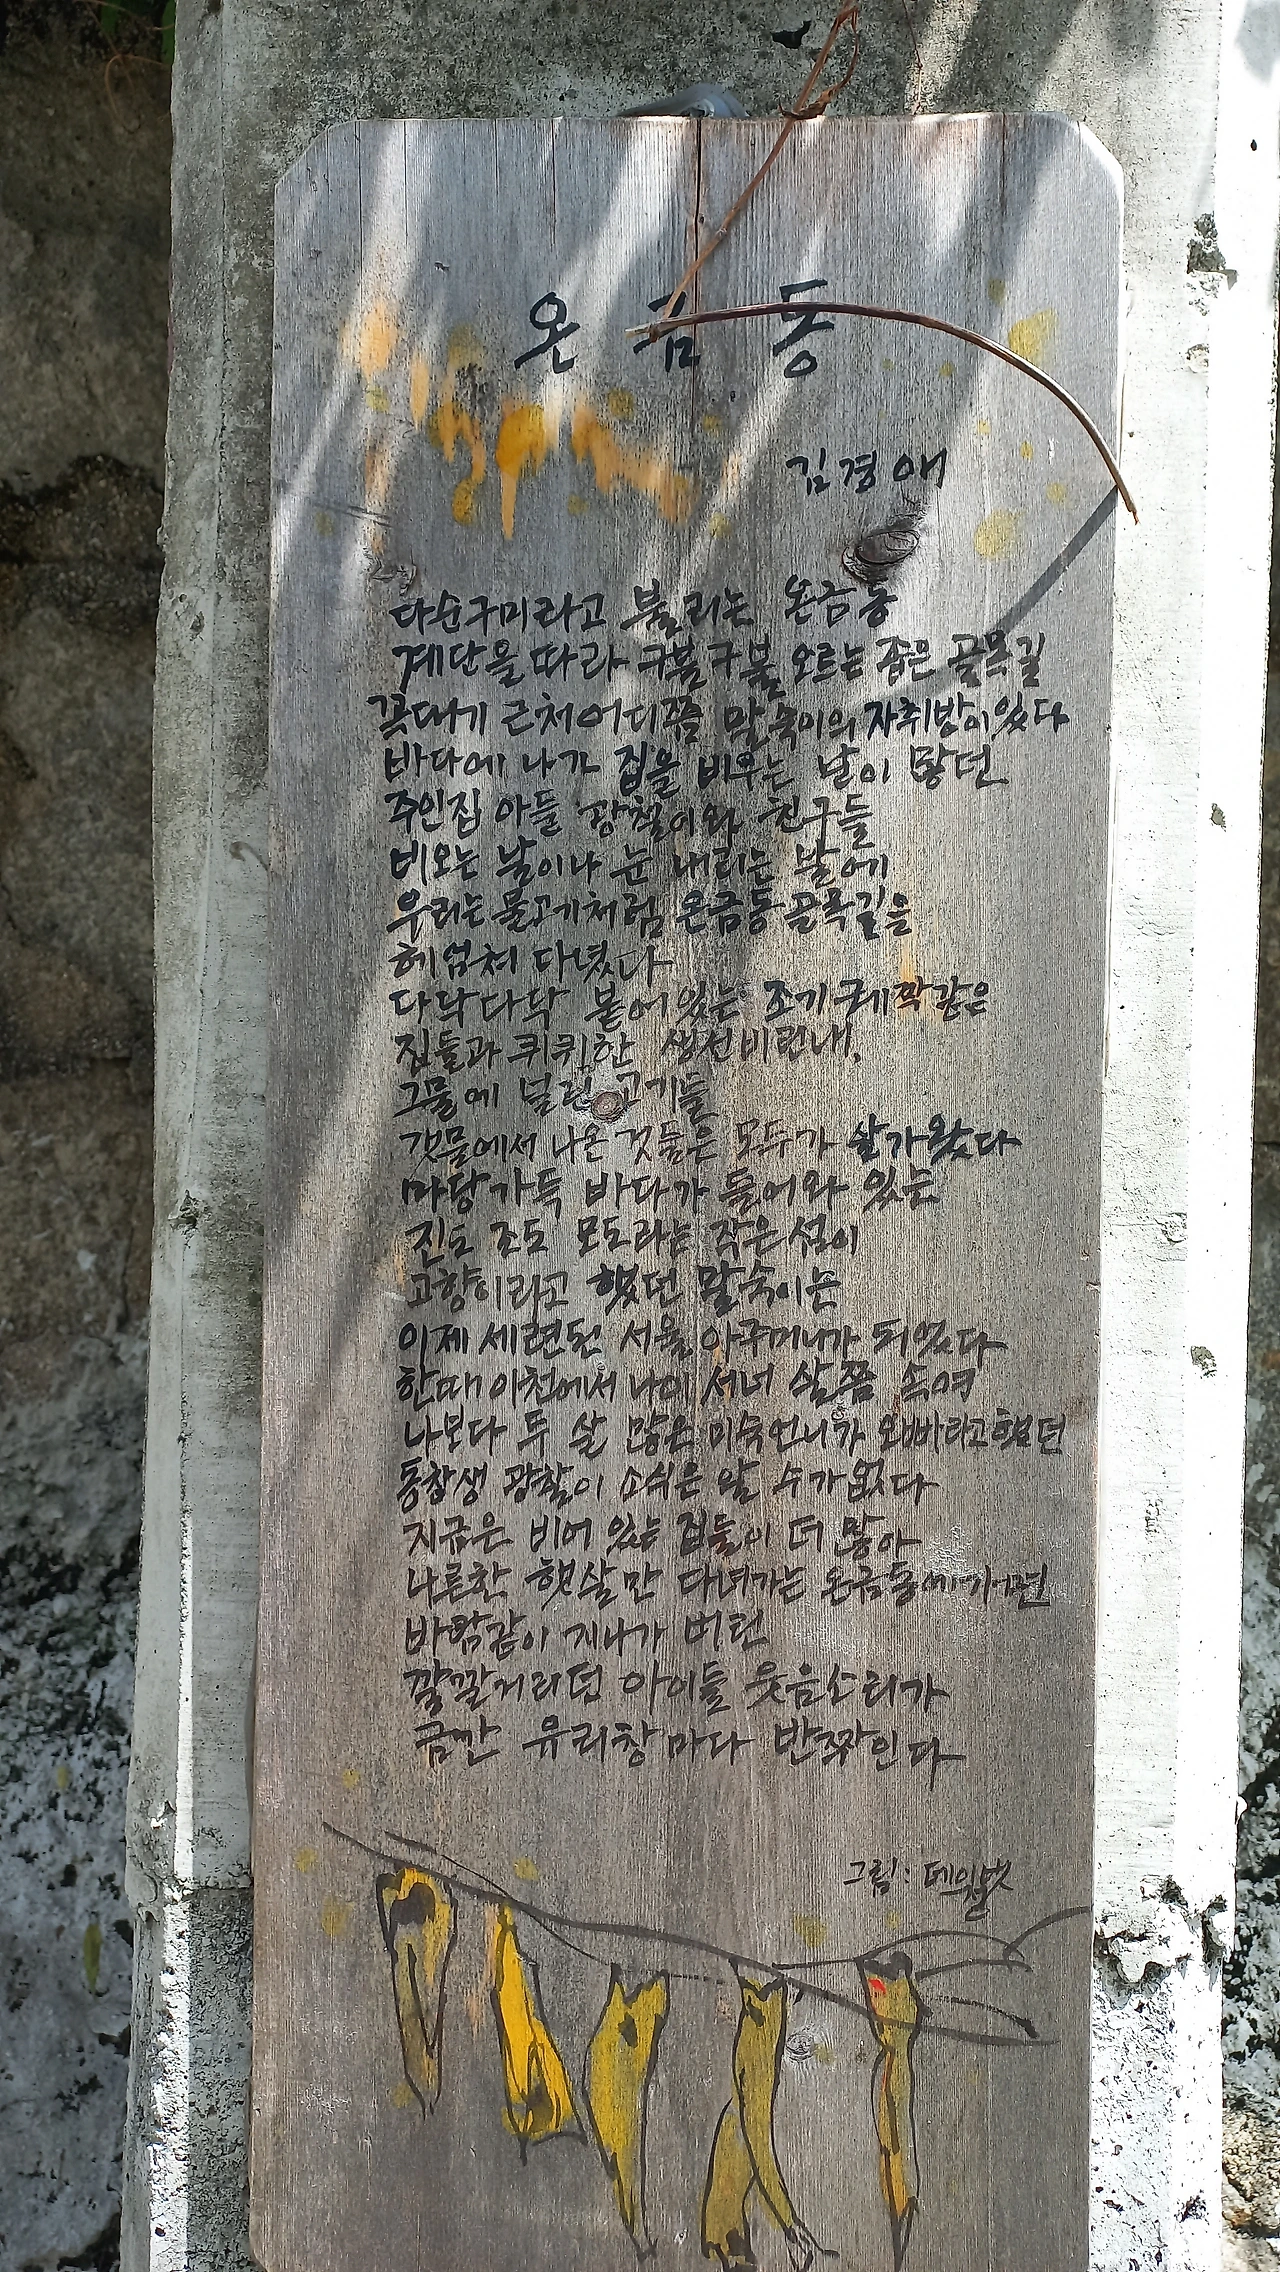 온금동
김경애
다순구미라고 불리는 온금동
계단을 따라 구불구불 오르는 좁은 골목길
꼭대기 근처 어디쯤 말숙이의 자취방이 있다
바다에 나가 집을 비우는 날이 많던
주인집 아들 광철이와 친구들
비오는 날이나 눈 내리는 밤에
우리는 물고기처럼 온금동 골목길을
헤엄쳐 다녔다
다닥다닥 붙어 있는 조기 궤짝 같은
집들과 퀴퀴한 생선비린내,
그물에 널린 고기들
갯물에서 나온 것들은 모두가 살가웠다
마당 가득 바다가 들어와 있는
진도 조도 모도라는 작은 섬이
고향이라고 했던 말숙이는
이제 세련된 서울 아주머니가 되었다
한때 이천에서 나이 서너 살쯤 속여
나보다 두 살 많은 미숙언니가 오빠라고 했던
동창생 광철이 소식은 알 수가 없다
지금은 비어 있는 집들이 더 많아
나른한 햇살만 다녀가는 온금동에 가면
바람같이 지나가 버린
깔깔거리던 아이들 웃음소리가
금간 유리창마다 반짝인다
그림: